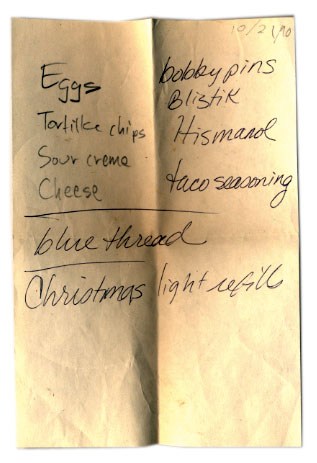 10/21/90
Eggs
Tortilla chips
Sour creme
Cheese
bobby pins
Blistik
Hismanol
taco seasoning
blue thread
Christmas light refills